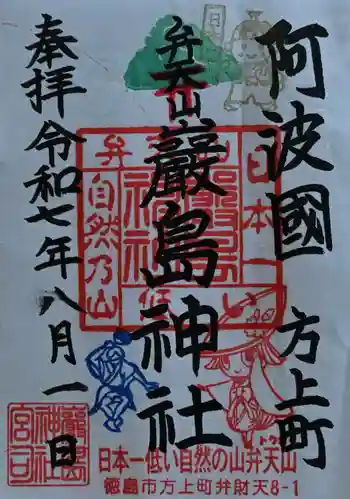 阿波國 方上町
弁天山
巖島神社
奉拝 令和七年八月一日
日本一低い
弁天山
自然乃山
嚴島神社
嚴島神社宮司
日本一低い自然の山弁天山
徳島市方上町弁財天8-1